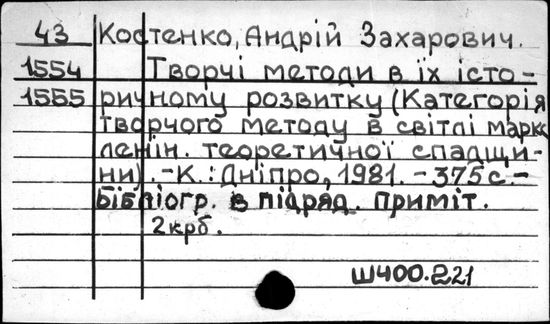 43 Костенко, Андрій Захарович.
1554 Творчі методи в їх істо-
1555 ричному розвитку (Категорія
творчого методу в світлі маркс.
ленін. теоретичної спадщи-
ни). -К.: Дніпро, 1981. - 375 с. -
Бібліогр. в підряд. приміт.
2крб.
Ш400.221